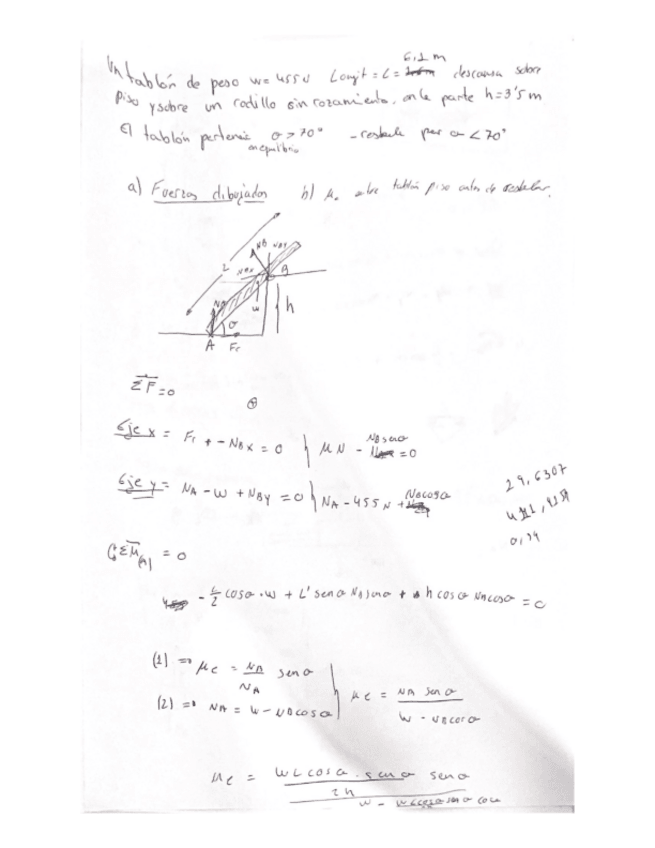 Un tablón de peso w = 455 N Longit = L = 6,1 m descansa sobre
piso y sobre un rodillo sin rozamiento, en la parte h = 3'5 m
El tablón σ > 70° en equilibrio - resbala por σ < 70°
a) Fuerzas dibujadas b) μe entre tablón piso antes de resbalar.
L
NB NBY
NBX
B
NA
w
h
σ
A Fr
ΣF = 0
⊕
Eje x = Fr + - NBX = 0 | μN - NB senσ = 0
Eje y = NA - w + NBY = 0 | NA - 455 N + NB cosσ
29,6307
0,34
ΣM(A) = 0
- L/2 cosσ · w + L' senσ NB senσ + h cosσ NB cosσ = 0
(1) => μe = NA/NA senσ
(2) => NA = w - NB cosσ | μe = NA senσ / w - NB cosσ
μe = wL cosσ · senσ senσ / 2h
w - wL cosσ senσ cosσ